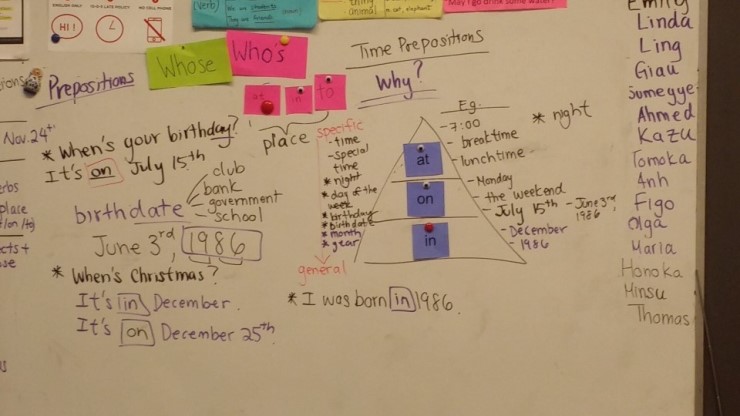 ENGLISH ONLY
10:15 LATE POLICY
NO CELL PHONE
HI !
(verb)
We are students
They are friends
animal
a cat, elephant
May I go drink some water?
Whose
Who's
at
in
to
place
Prepositions
Time Prepositions
Why?
Nov. 24th
* When's your birthday?
It's on July 15th
birthdate
club
bank
government
school
June 3rd, 1986
* When's Christmas?
It's in December.
It's on December 25th.
specific
- time
- special
time
* night
* day of the
week
* birthday
* birthdate
* month
* year
general
at
on
in
E.g.
- 7:00
- breaktime
- lunchtime
* night
- Monday
- the weekend
- July 15th
- June 3rd,
1986
- December
- 1986
* I was born in 1986.
Emily
Linda
Ling
Giau
Sumeyye
Ahmed
Kazu
Tomoka
Anh
Figo
Olga
Maria
Honoka
Minsu
Thomas